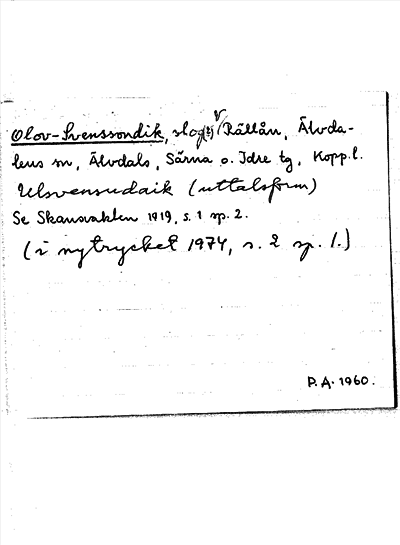 Olov-Svenssondik, slog(?) v Rällån, Älvda-
lens sn, Älvdals, Särna o. Idre tg, Kopp.l.
Ulsvensudaik (uttalsform)
Se Skansvakten 1919, s. 1 sp. 2.
(i nytrycket 1974, s. 2 sp. 1.)
P.A. 1960.